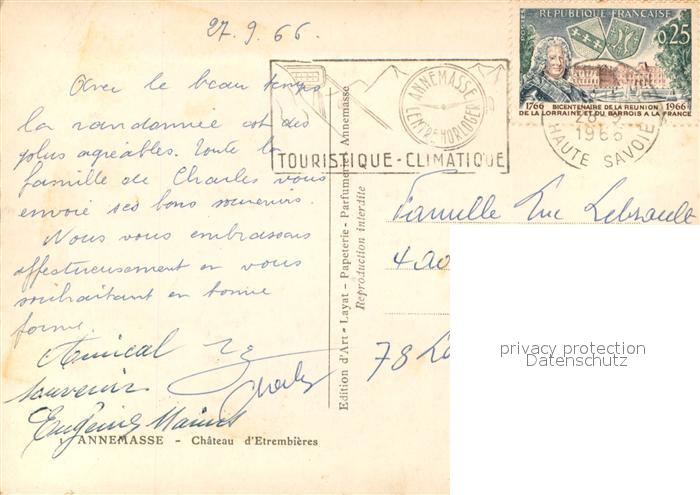 27.9.66.
Avec le beau temps
la randonnée est des
plus agréables. Toute la
famille de Charles vous
envoie ses bons souvenirs.
Nous vous embrassons
affectueusement en vous
souhaitant en bonne
forme.
Amical
souvenir
Charles
Eugénie
ANNEMASSE - Château d'Etrembières
Edition d'Art - Layat - Papeterie - Parfumerie - Annemasse
Reproduction interdite
ANNEMASSE
CENTRE HORLOGER
TOURISTIQUE-CLIMATIQUE
REPUBLIQUE FRANÇAISE
0,25
1766 BICENTENAIRE DE LA REUNION 1966
DE LA LORRAINE ET DU BARROIS A LA FRANCE
1966
HAUTE SAVOIE
Famille Luc
78
privacy protection
Datenschutz